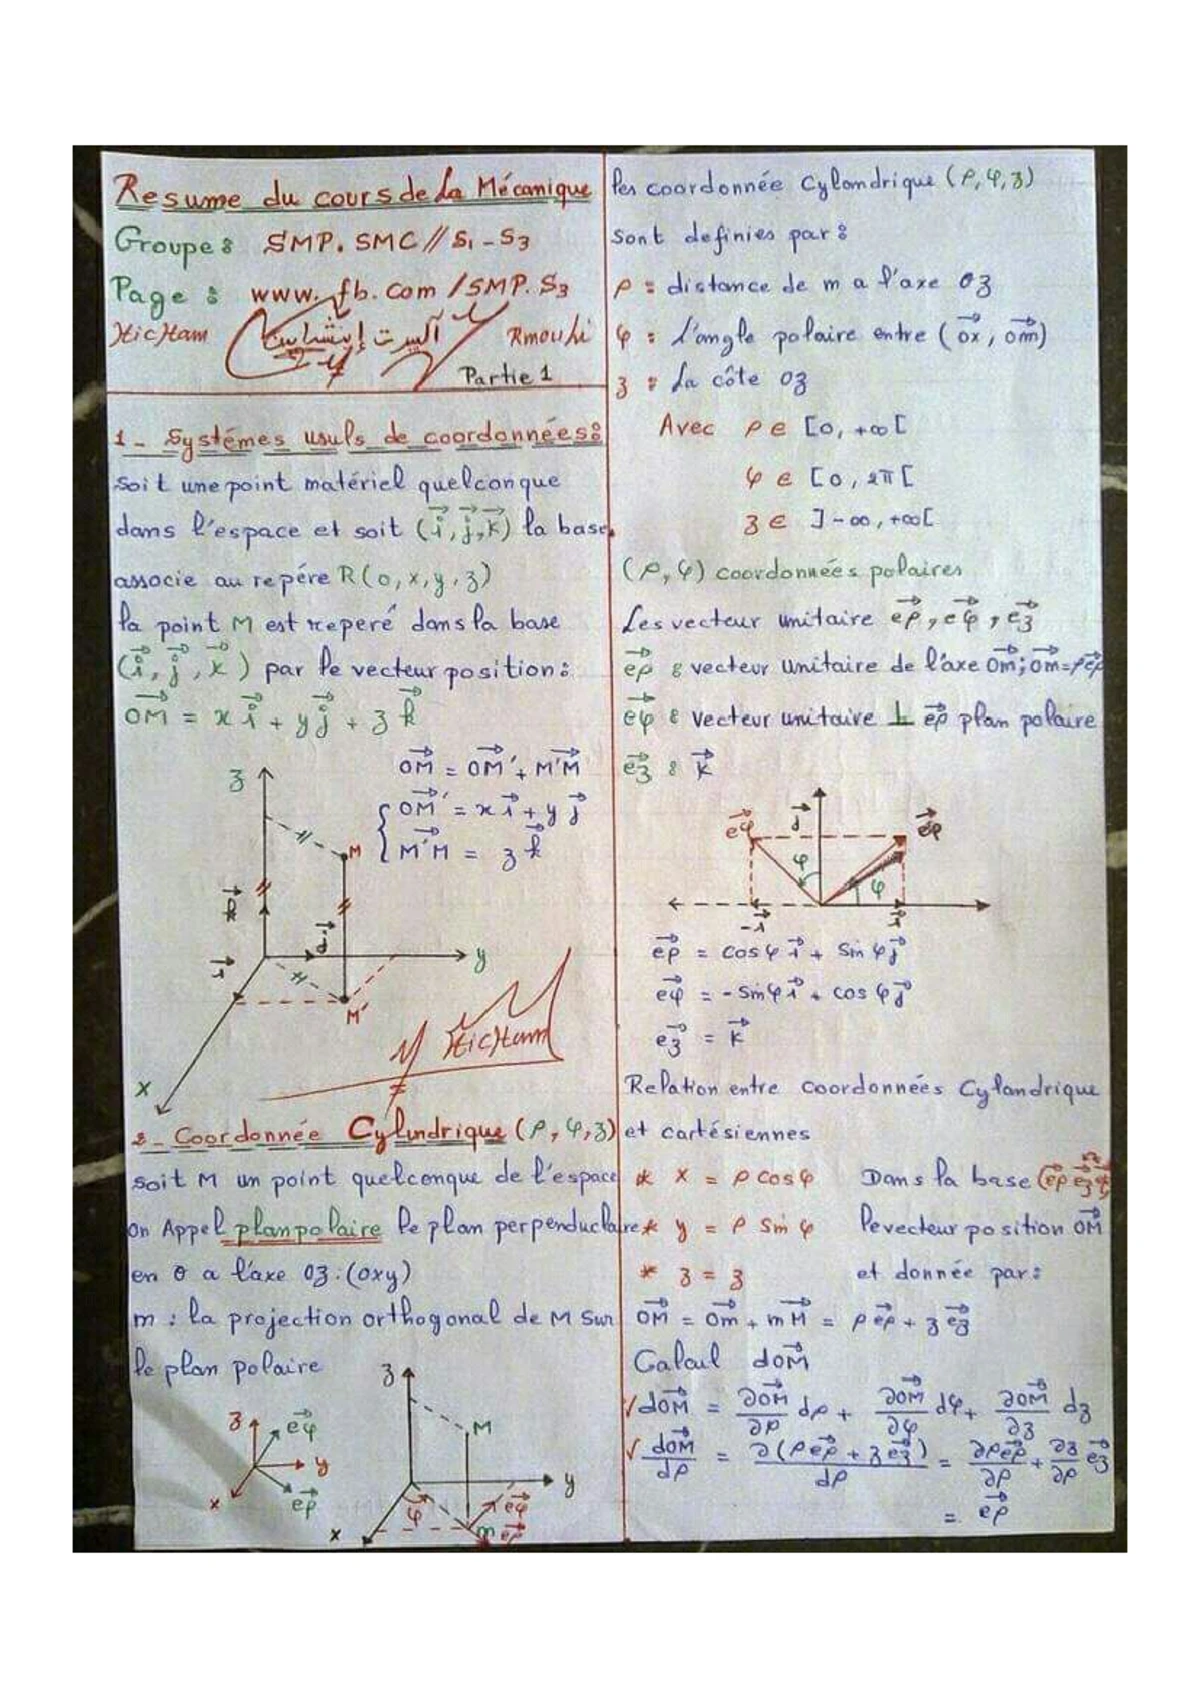 Resume du cours de La Mécanique
Groupe : SMP. SMC // S1 - S3
Page : www. fb. Com / SMP. S3
HicHam آلبرت إينشتاين Rmouhi
Partie 1
1 - Systémes usuls de coordonnées :
soit une point matériel quelconque
dans l'espace et soit (i⃗, j⃗, k⃗) la base
associe au repére R(o, x, y, z)
la point M est reperé dans la base
(i⃗, j⃗, k⃗) par le vecteur position :
OM⃗ = x i⃗ + y j⃗ + z k⃗
OM⃗ = OM⃗' + M'M⃗
OM⃗' = x i⃗ + y j⃗
M'M⃗ = z k⃗
z
M
k⃗
j⃗
i⃗
y
M'
x
HicHam
2 - Coordonnée Cylindrique (ρ, φ, z)
soit M un point quelconque de l'espace
on Appel plan polaire le plan perpenduclaire
en O a l'axe Oz : (oxy)
m : la projection orthogonal de M sur
le plan polaire
z
eφ⃗
y
x
eρ⃗
z
M
y
φ
eφ⃗
x
m
eρ⃗
les coordonnée Cylandrique (ρ, φ, z)
sont definies par :
ρ : distance de m a l'axe Oz
φ : L'angle polaire entre (ox⃗, om⃗)
z : La côte Oz
Avec ρ ∈ [0, +∞[
φ ∈ [0, 2π[
z ∈ ]-∞, +∞[
(ρ, φ) coordonneés polaires
Les vecteur unitaire eρ⃗, eφ⃗, ez⃗
eρ⃗ : vecteur unitaire de l'axe Om⃗; Om⃗ = ρeρ⃗
eφ⃗ : vecteur unitaire ⊥ eρ⃗ plan polaire
ez⃗ : k⃗
eφ⃗
j⃗
eφ⃗
φ
φ
-i⃗
i⃗
eρ⃗ = cosφ i⃗ + sinφ j⃗
eφ⃗ = -sinφ i⃗ + cosφ j⃗
ez⃗ = k⃗
Relation entre coordonneés Cylandrique
et cartésiennes
* x = ρ cosφ Dans la base (eρ⃗ eφ⃗ ez⃗)
* y = ρ sinφ le vecteur position OM⃗
* z = z et donnée par :
OM⃗ = Om⃗ + mM⃗ = ρ eρ⃗ + z ez⃗
Calcul dOM⃗
√ dOM⃗ = ∂OM⃗/∂ρ dρ + ∂OM⃗/∂φ dφ + ∂OM⃗/∂z dz
√ dOM⃗/dρ = ∂(ρeρ⃗ + z ez⃗)/dρ = ∂ρeρ⃗/∂ρ + ∂z/∂ρ ez⃗
= eρ⃗